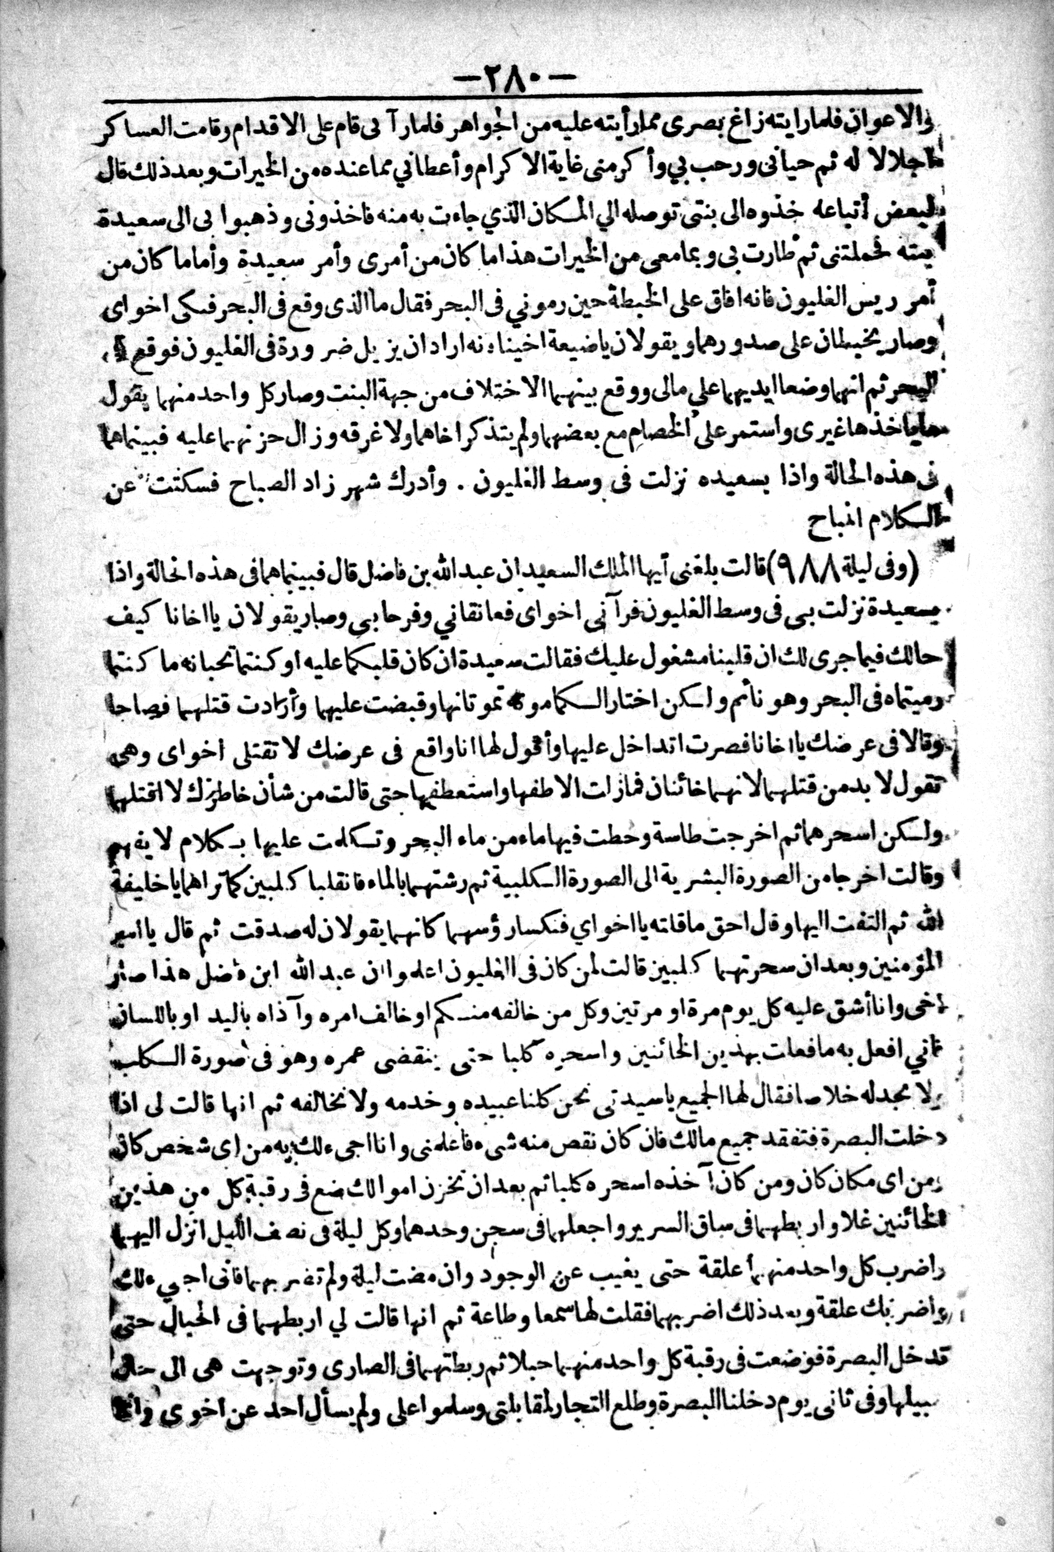 —٢٨٠—
والاعوان فلما رايته زاغ بصرى مما رأيته عليه من الجواهر فلما رآنى قام على الاقدام وقامت العساكر
اجلالا له ثم حيانى ورحب بي وأكرمنى غاية الاكرام وأعطاني مما عنده من الخيرات وبعد ذلك قال
لبعض أتباعه خذوه الى بنتى توصله الي المكان الذي جاءت به منه فاخذونى وذهبوا بى الى سعيدة
بنته فحملتنى ثم طارت بى وبمامعى من الخيرات هذا ما كان من أمرى وأمر سعيدة وأما ما كان من
أمر ريس الغليون فانه افاق على الخبطة حين رموني فى البحر فقال ما الذى وقع فى البحر فبكى اخواى
وصار يخبطان على صدورهما ويقولان ياضيعة اخينا انه اراد ان يزيل ضرورة فى الغليون فوقع فى
البحر ثم انهما وضعا ايديهما علي مالى ووقع بينهما الاختلاف من جهة البنت وصار كل واحد منهما يقول
ما ياخذها غيرى واستمر على الخصام مع بعضهما ولم يتذكرا اخاهما ولا غرقه وزال حزنهما عليه فبينما هما
فى هذه الحالة واذا بسعيده نزلت فى وسط الغليون . وأدرك شهر زاد الصباح فسكتت عن
الكلام المباح
(وفى ليلة ٩٨٨) قالت بلغنى أيها الملك السعيد ان عبد الله بن فاضل قال فبينما هما فى هذه الحالة واذا
بسعيدة نزلت بى فى وسط الغليون فرآنى اخواى فعانقاني وفرحا بى وصار يقولان يا اخانا كيف
حالك فيما جرى لك ان قلبنا مشغول عليك فقالت سعيدة ان كان قلبكما عليه او كنتما تحبانه ما كنتما
رميتماه فى البحر وهو نائم ولكن اختارا لكما موتة تموتانها وقبضت عليهما وأرادت قتلهما فصاحا
وقالا فى عرضك يا اخانا فصرت اتداخل عليها وأقول لها انا واقع فى عرضك لا تقتلى اخواى وهى
تقول لا بد من قتلهما لانهما خائنان فما زات الاطفها واستعطفها حتى قالت من شأن خاطرك لا اقتلهما
ولكن اسحرهما ثم اخرجت طاسة وحطت فيها ماء من ماء البحر وتكلمت عليها بكلام لا يفهم
وقالت اخرجا من الصورة البشرية الى الصورة الكلبية ثم رشتهما بالماء فانقلبا كلبين كما تراهما يا خليفة
الله ثم التفت اليهما وقال احق ما قلته يا اخواي فنكسا رؤسهما كانهما يقولان له صدقت ثم قال يا امير
المؤمنين وبعد ان سحرتهما كلبين قالت لمن كان فى الغليون اعلموا ان عبد الله ابن فاضل هذا صار
أخى وانا أشق عليه كل يوم مرة او مرتين وكل من خالفه منكم او خالف امره وآذاه باليد او باللسان
فاني افعل به ما فعات بهذين الخائنين واسحره كلبا حتى ينقضى عمره وهو فى صورة الكلب
ولا يجد له خلاصا فقال لها الجميع ياسيدتى نحن كلنا عبيده وخدمه ولا نخالفه ثم انها قالت لى اذا
دخلت البصرة فتفقد جميع مالك فان كان نقص منه شىء فاعلمنى وانا اجىء لك به من اى شخص كان
ومن اى مكان كان ومن كان آخذه اسحره كلبا ثم بعد ان تخزن اموالك ضع فى رقبة كل من هذين
الخائنين غلا واربطهما فى ساق السرير واجعلهما فى سجن وحدهما وكل ليلة فى نصف الليل انزل اليهما
واضرب كل واحد منهما علقة حتى يغيب عن الوجود وان مضت ليلة ولم تضربهما فانى اجيء لك
واضربك علقة وبعد ذلك اضربهما فقلت لها سمعا وطاعة ثم انها قالت لي اربطهما فى الحبال حتى
تدخل البصرة فوضعت فى رقبة كل واحد منهما حبلا ثم ربطتهما فى الصارى وتوجهت هى الى حال
سبيلها وفى ثانى يوم دخلنا البصرة وطلع التجار لمقابلتى وسلموا على ولم يسأل احد عن اخوى وانما